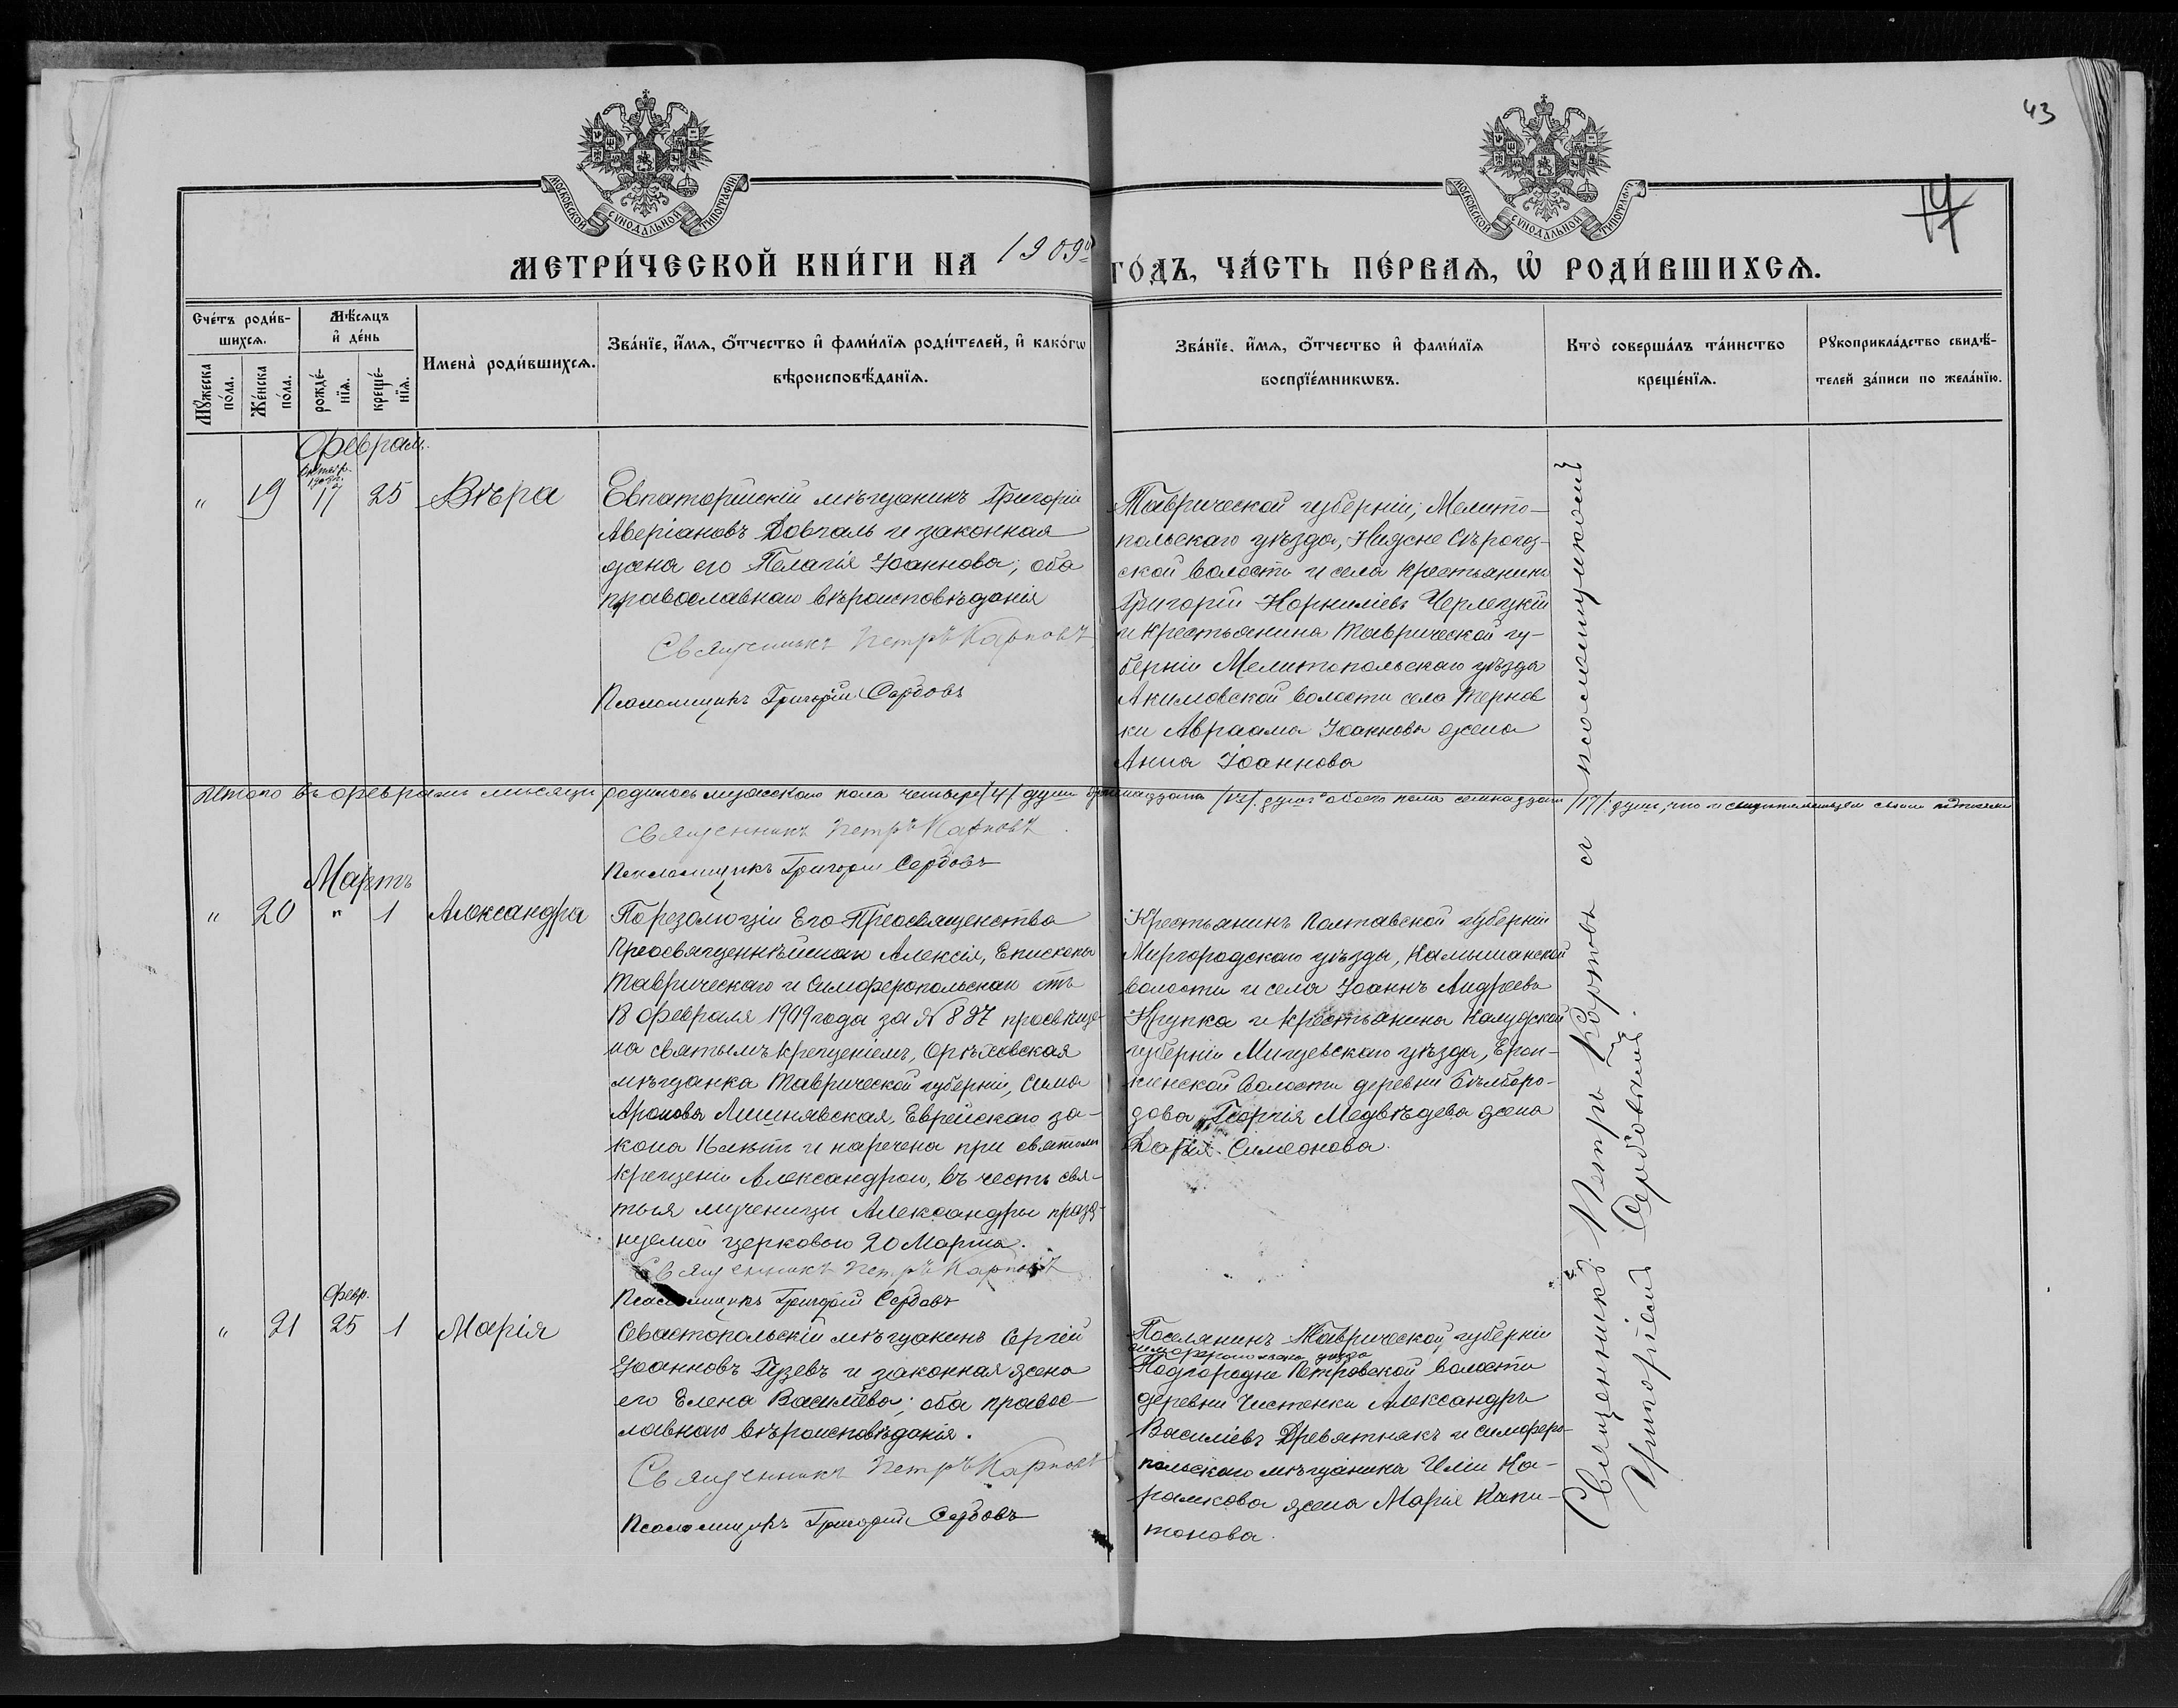 43
14
МОСКОВСКОЙ СѴНОДАЛЬНОЙ ТИПОГРАФІИ
МОСКОВСКОЙ СѴНОДАЛЬНОЙ ТИПОГРАФІИ
МЕТРИ́ЧЕСКОЙ КНИ́ГИ НА 1909й ГО́ДЪ, ЧА́СТЬ ПЕ́РВАѦ, Ѡ҆ РОДИ́ВШИХСѦ.
Сче́тъ роди́в-
шихсѧ.
Мꙋ́жеска
по́ла.
Же́нска
по́ла.
Мѣ́сѧцъ
и҆ де́нь
рожде́-
нїѧ.
креще́-
нїѧ.
Имена̀ роди́вшихсѧ.
Зва́нїе, и҆́мѧ, ѻ҆́тчество и҆ фами́лїѧ роди́телей, и҆ како́гѡ
вѣроисповѣ́данїѧ.
Зва́нїе, и҆́мѧ, ѻ҆́тчество и҆ фами́лїѧ
воспрїе́мникѡвъ.
Кто̀ соверша́лъ та́инство
креще́нїѧ.
Рꙋкоприкла́дство свидѣ́-
телей за́писи по жела́нїю.
Февраль
„ 19 17 25 Вѣра
Евпаторійскій мѣщанинъ Григорій
Аверіановъ Довгаль и законная
жена его Пелагія Іоаннова; оба
православнаго вѣроисповѣданія
Священникъ Петръ Карповъ
Псаломщикъ Григорій Сербовъ
Таврической губерніи, Мелито-
польскаго уѣзда, Нижне Сѣрогоз-
ской волости и села крестьянинъ
Григорій Корниліевъ Черлецкій
и крестьянина Таврической гу-
берніи Мелитопольскаго уѣзда
Акимовской волости села Тернов
ки Авраама Іоаннова жена
Анна Іоаннова
Итого въ февралѣ мѣсяцѣ родилось мужескаго пола четыре /4/ души /13/ душъ обоего пола семнадцать /17/ душъ, что и
Священникъ Петръ Карповъ
Псаломщикъ Григорій Сербовъ
Мартъ
„ 20 „ 1 Александра
По резолюціи Его Преосвященства
Преосвященнѣйшаго Алексія, Епископа
Таврическаго и Симферопольскаго отъ
18 февраля 1909 года за № 887 просвѣще-
на святымъ крещеніемъ, Орѣховская
мѣщанка Таврической губерніи, Сима
Аронова Лишнявская, Еврейскаго за-
кона 16 лѣтъ и наречена при святомъ
крещеніи Александрой, въ честь свя-
тыя мученицы Александры празд-
нуемой церковью 20 Марта.
Священникъ Петръ Карповъ
Псаломщикъ Григорій Сербовъ
Крестьянинъ Полтавской губерніи
Миргородскаго уѣзда, Камышанской
волости и села Іоаннъ Андреевъ
Крупка и крестьянина Калужской
губерніи Мещевскаго уѣзда,
волости деревни
Георгія Медвѣдева жена
Дарія Симеонова.
Февр.
„ 21 25 1 Марія
Севастопольскій мѣщанинъ Сергій
Іоанновъ Гузевъ и законная жена
его Елена Василіева; оба правос-
лавнаго вѣроисповѣданія.
Священникъ Петръ Карповъ
Псаломщикъ Григорій Сербовъ
Поселянинъ Таврической губерніи
Симферопольскаго уѣзда
Подгородне Петровской волости
деревни Чистенки Александръ
Василіевъ Древятнякъ и Симферо-
польскаго мѣщанина Иліи Ка-
рамкова жена Марія Капи-
тонова.
Священникъ Петръ Карповъ съ псаломщикомъ
Григоріемъ Сербовымъ.